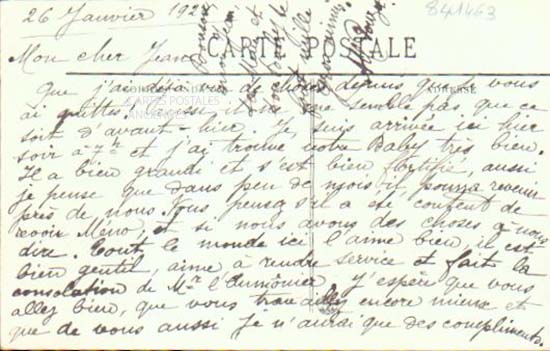 26 Janvier 192
841463
CARTE POSTALE
Mon cher Jean
ADRESSE
Que j'ai déjà vu de choses depuis que je vous
ai quittés, aussi il ne me semble pas que ce
soit d'avant-hier. Je suis arrivée ici hier
soir à 7h et j'ai trouvé notre Baby très bien.
Il a bien grandi et s'est bien fortifié, aussi
je pense que dans peu de mois il pourra revenir
près de nous. Vous pensez s'il a été content de
revoir Meno, et si nous avons des choses à nous
dire. Tout le monde ici l'aime bien, il est
bien gentil, aime à rendre service et fait la
consolation de Mr l'Aumônier. J'espère que vous
allez bien, que vous travaillez encore mieux et
que de vous aussi je n'aurai que des compliments.
CARTES POSTALES